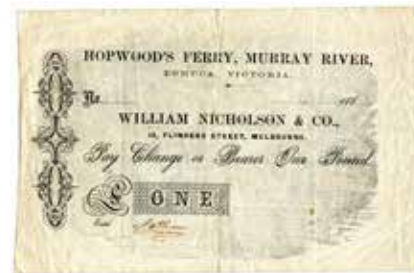 HOPWOOD'S FERRY, MURRAY RIVER,
ECHUCA, VICTORIA.
No.
WILLIAM NICHOLSON & CO.,
FLINDERS STREET, MELBOURNE.
Pay Change or Bearer One Pound
£ ONE